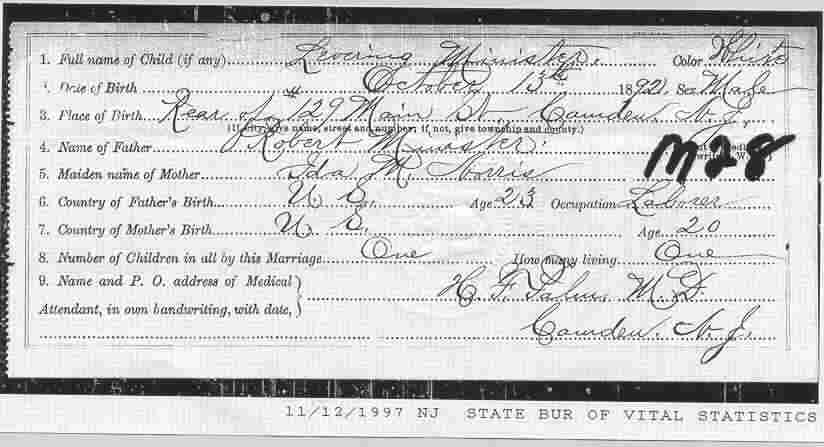 1. Full name of Child (if any) Levering Minister. Color White
2. Date of Birth October 13th 1892. Sex Male
3. Place of Birth Rear of 129 Main St. Camden N. J.
(If city, give name, street and number; if not, give township and county.)
4. Name of Father Robert Minister.
M28
5. Maiden name of Mother Ida M. Norris
6. Country of Father's Birth U S. Age 23 Occupation Laborer
7. Country of Mother's Birth U. S. Age 20
8. Number of Children in all by this Marriage One How many living One
9. Name and P. O. address of Medical H. F. Palm M.D.
Attendant, in own handwriting, with date, Camden. N. J.
11/12/1997 NJ STATE BUR OF VITAL STATISTICS